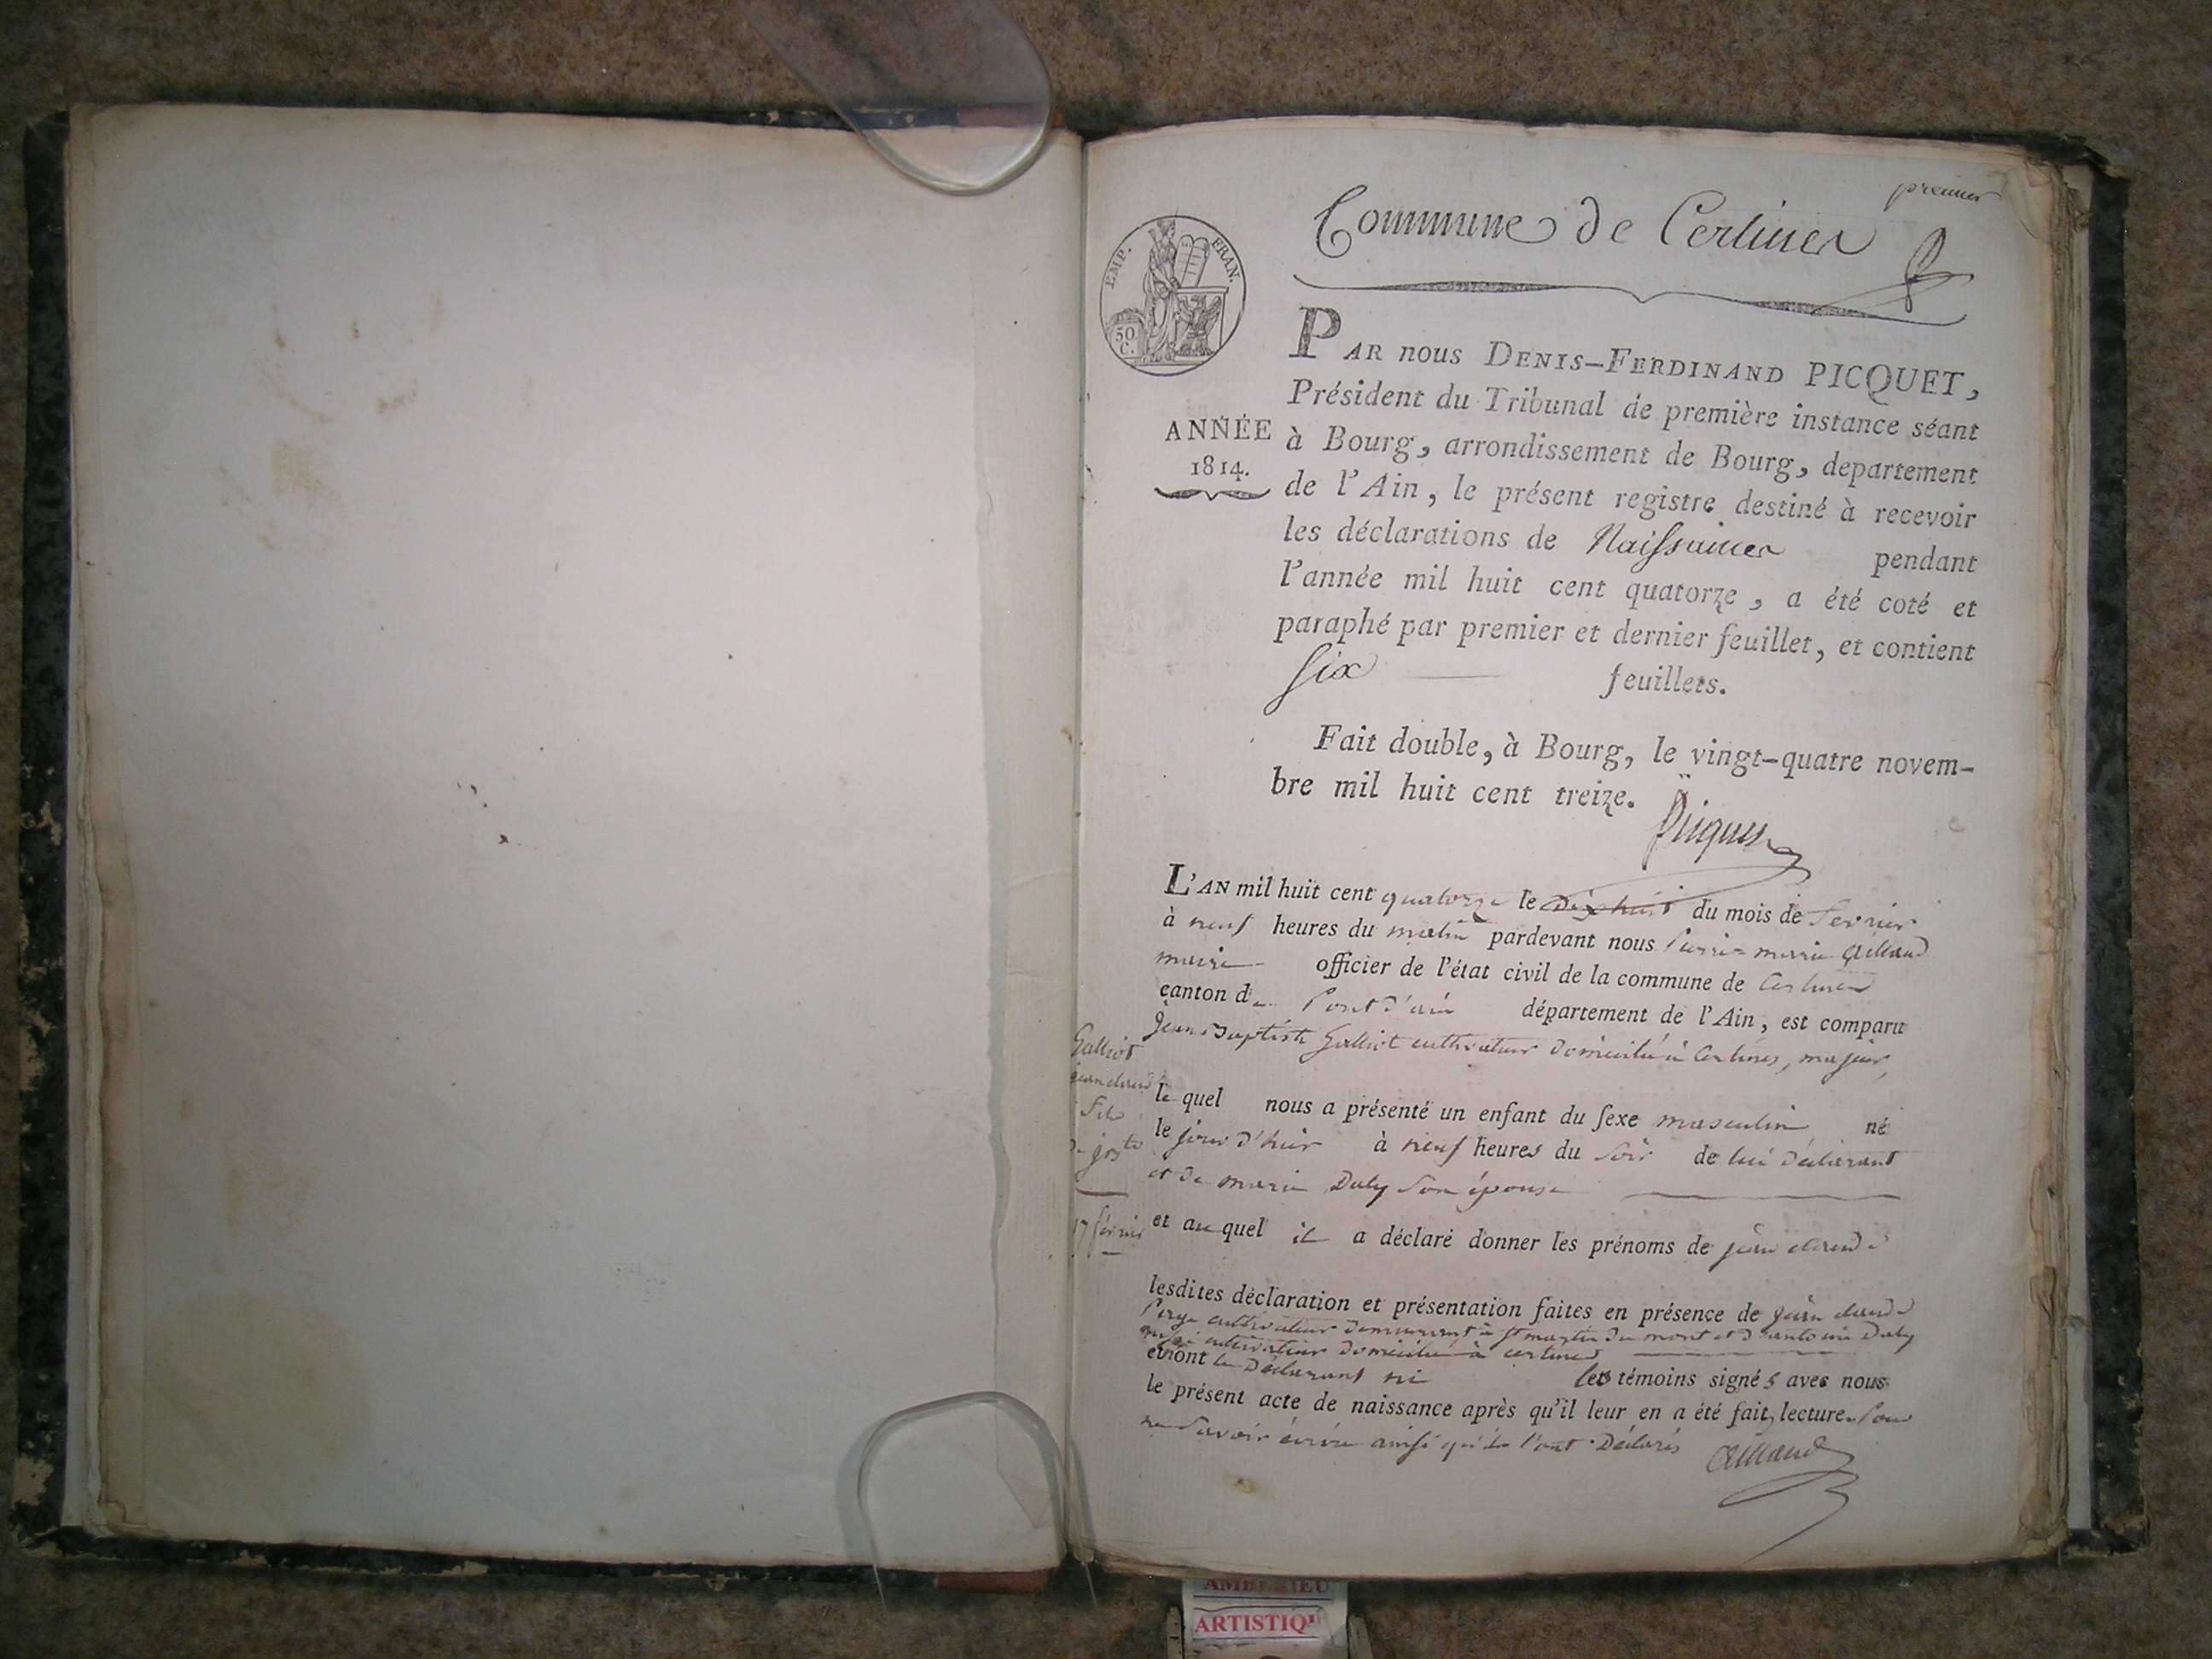 premier
Commune de Certines
EMP. FRAN.
50 C.
PAR nous DENIS-FERDINAND PICQUET,
Président du Tribunal de première instance séant
ANNÉE
1814.
à Bourg, arrondissement de Bourg, departement
de l'Ain, le présent registre destiné à recevoir
les déclarations de Naissances pendant
l'année mil huit cent quatorze, a été coté et
paraphé par premier et dernier feuillet, et contient
Six feuillets.
Fait double, à Bourg, le vingt-quatre novem-
bre mil huit cent treize.
Picquet
L'AN mil huit cent quatorze le dix huit du mois de fevrier
à neuf heures du matin pardevant nous Pierre marie
maire officier de l'état civil de la commune de Certines
canton de Pont d'ain département de l'Ain, est comparu
jean Baptiste Galliot cultivateur domicilié à Certines, majeur,
Galliot
jean claude
fils
de jn bte
17 février
le quel nous a présenté un enfant du sexe masculin né
le jour d'hier à neuf heures du soir de lui déclarant
et de marie Duby son épouse
et au quel il a déclaré donner les prénoms de jean claude
lesdites déclaration et présentation faites en présence de jean claude
cultivateur demeurant à st martin du mont et d'antoine Duby
aussi cultivateur domicilié à certines
et n'ont le Déclarant ni les témoins signés avec nous
le présent acte de naissance après qu'il leur en a été fait lecture. pour
ne savoir écrire ainsi qu'ils l'ont Déclarés
AMBERIEU
ARTISTIQ